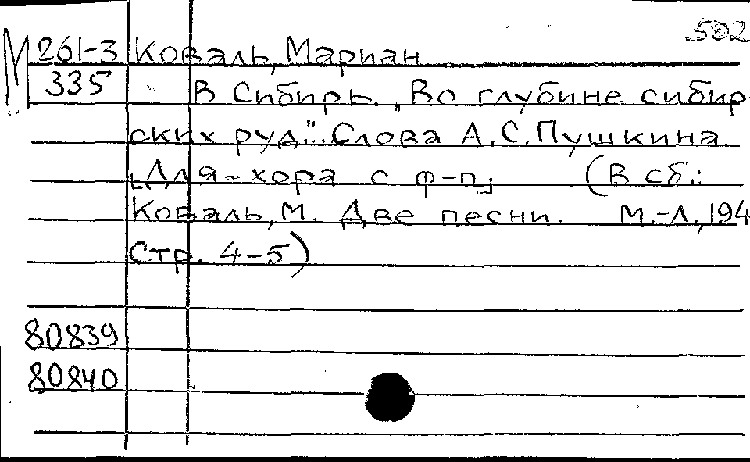 502
М 261-3 Коваль, Мариан
335 В Сибирь. „Во глубине сибир
ских руд". Слова А.С.Пушкина
[Для хора с ф-п] (В сб.:
Коваль, М. Две песни. М.-Л., 194
Стр. 4-5)
80839
80840